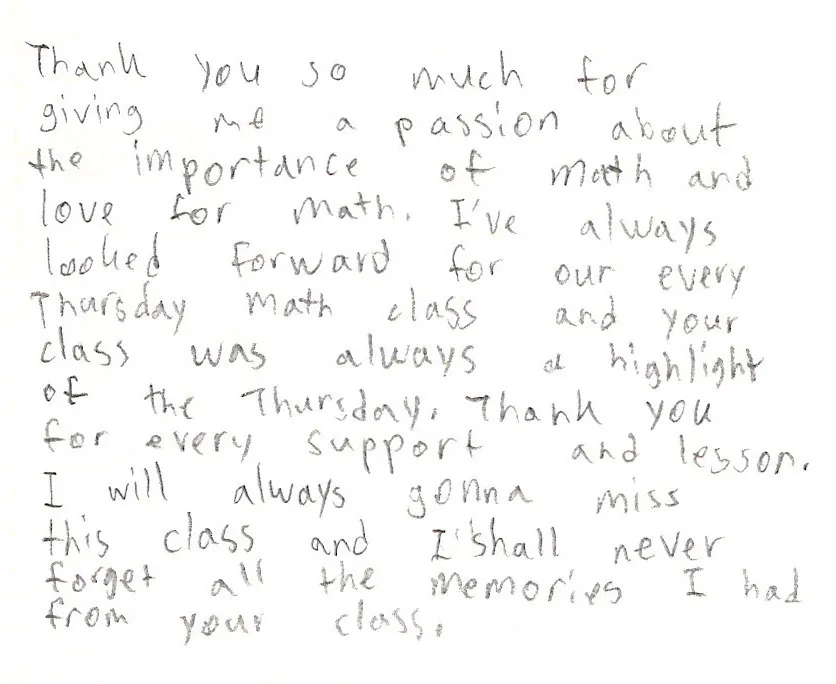 Thank you so much for
giving me a passion about
the importance of math and
love for math. I've always
looked forward for our every
Thursday math class and your
class was always a highlight
of the Thursday. Thank you
for every support and lesson.
I will always gonna miss
this class and I'shall never
forget all the memories I had
from your class.